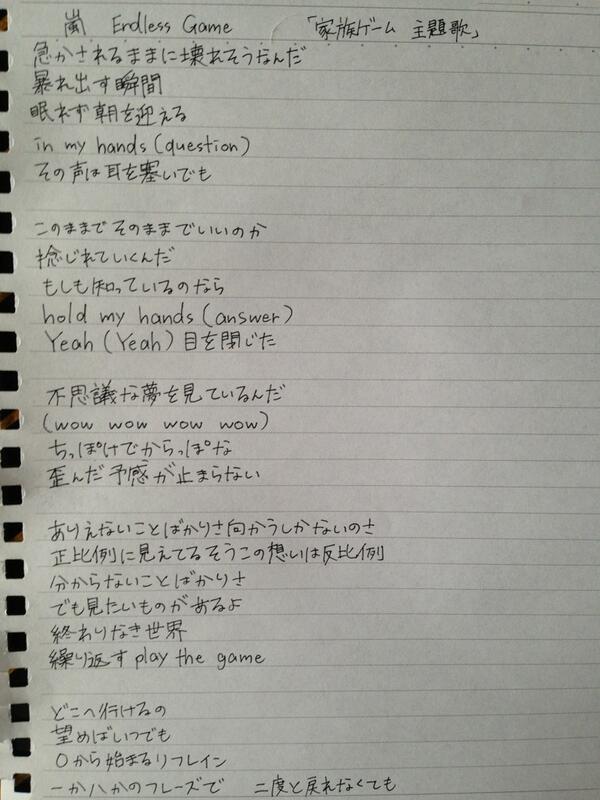 嵐 Endless Game 「家族ゲーム 主題歌」
急かされるままに壊れそうなんだ
暴れ出す瞬間
眠れず朝を迎える
in my hands (question)
その声は耳を塞いでも
このままでそのままでいいのか
捻じれていくんだ
もしも知っているのなら
hold my hands (answer)
Yeah (Yeah) 目を閉じた
不思議な夢を見ているんだ
(wow wow wow wow)
ちっぽけでからっぽな
歪んだ予感が止まらない
ありえないことばかりさ向かうしかないのさ
正比例に見えてるそうこの想いは反比例
分からないことばかりさ
でも見たいものがあるよ
終わりなき世界
繰り返す play the game
どこへ行けるの
望めばいつでも
0から始まるリフレイン
一か八かのフレーズで 二度と戻れなくても